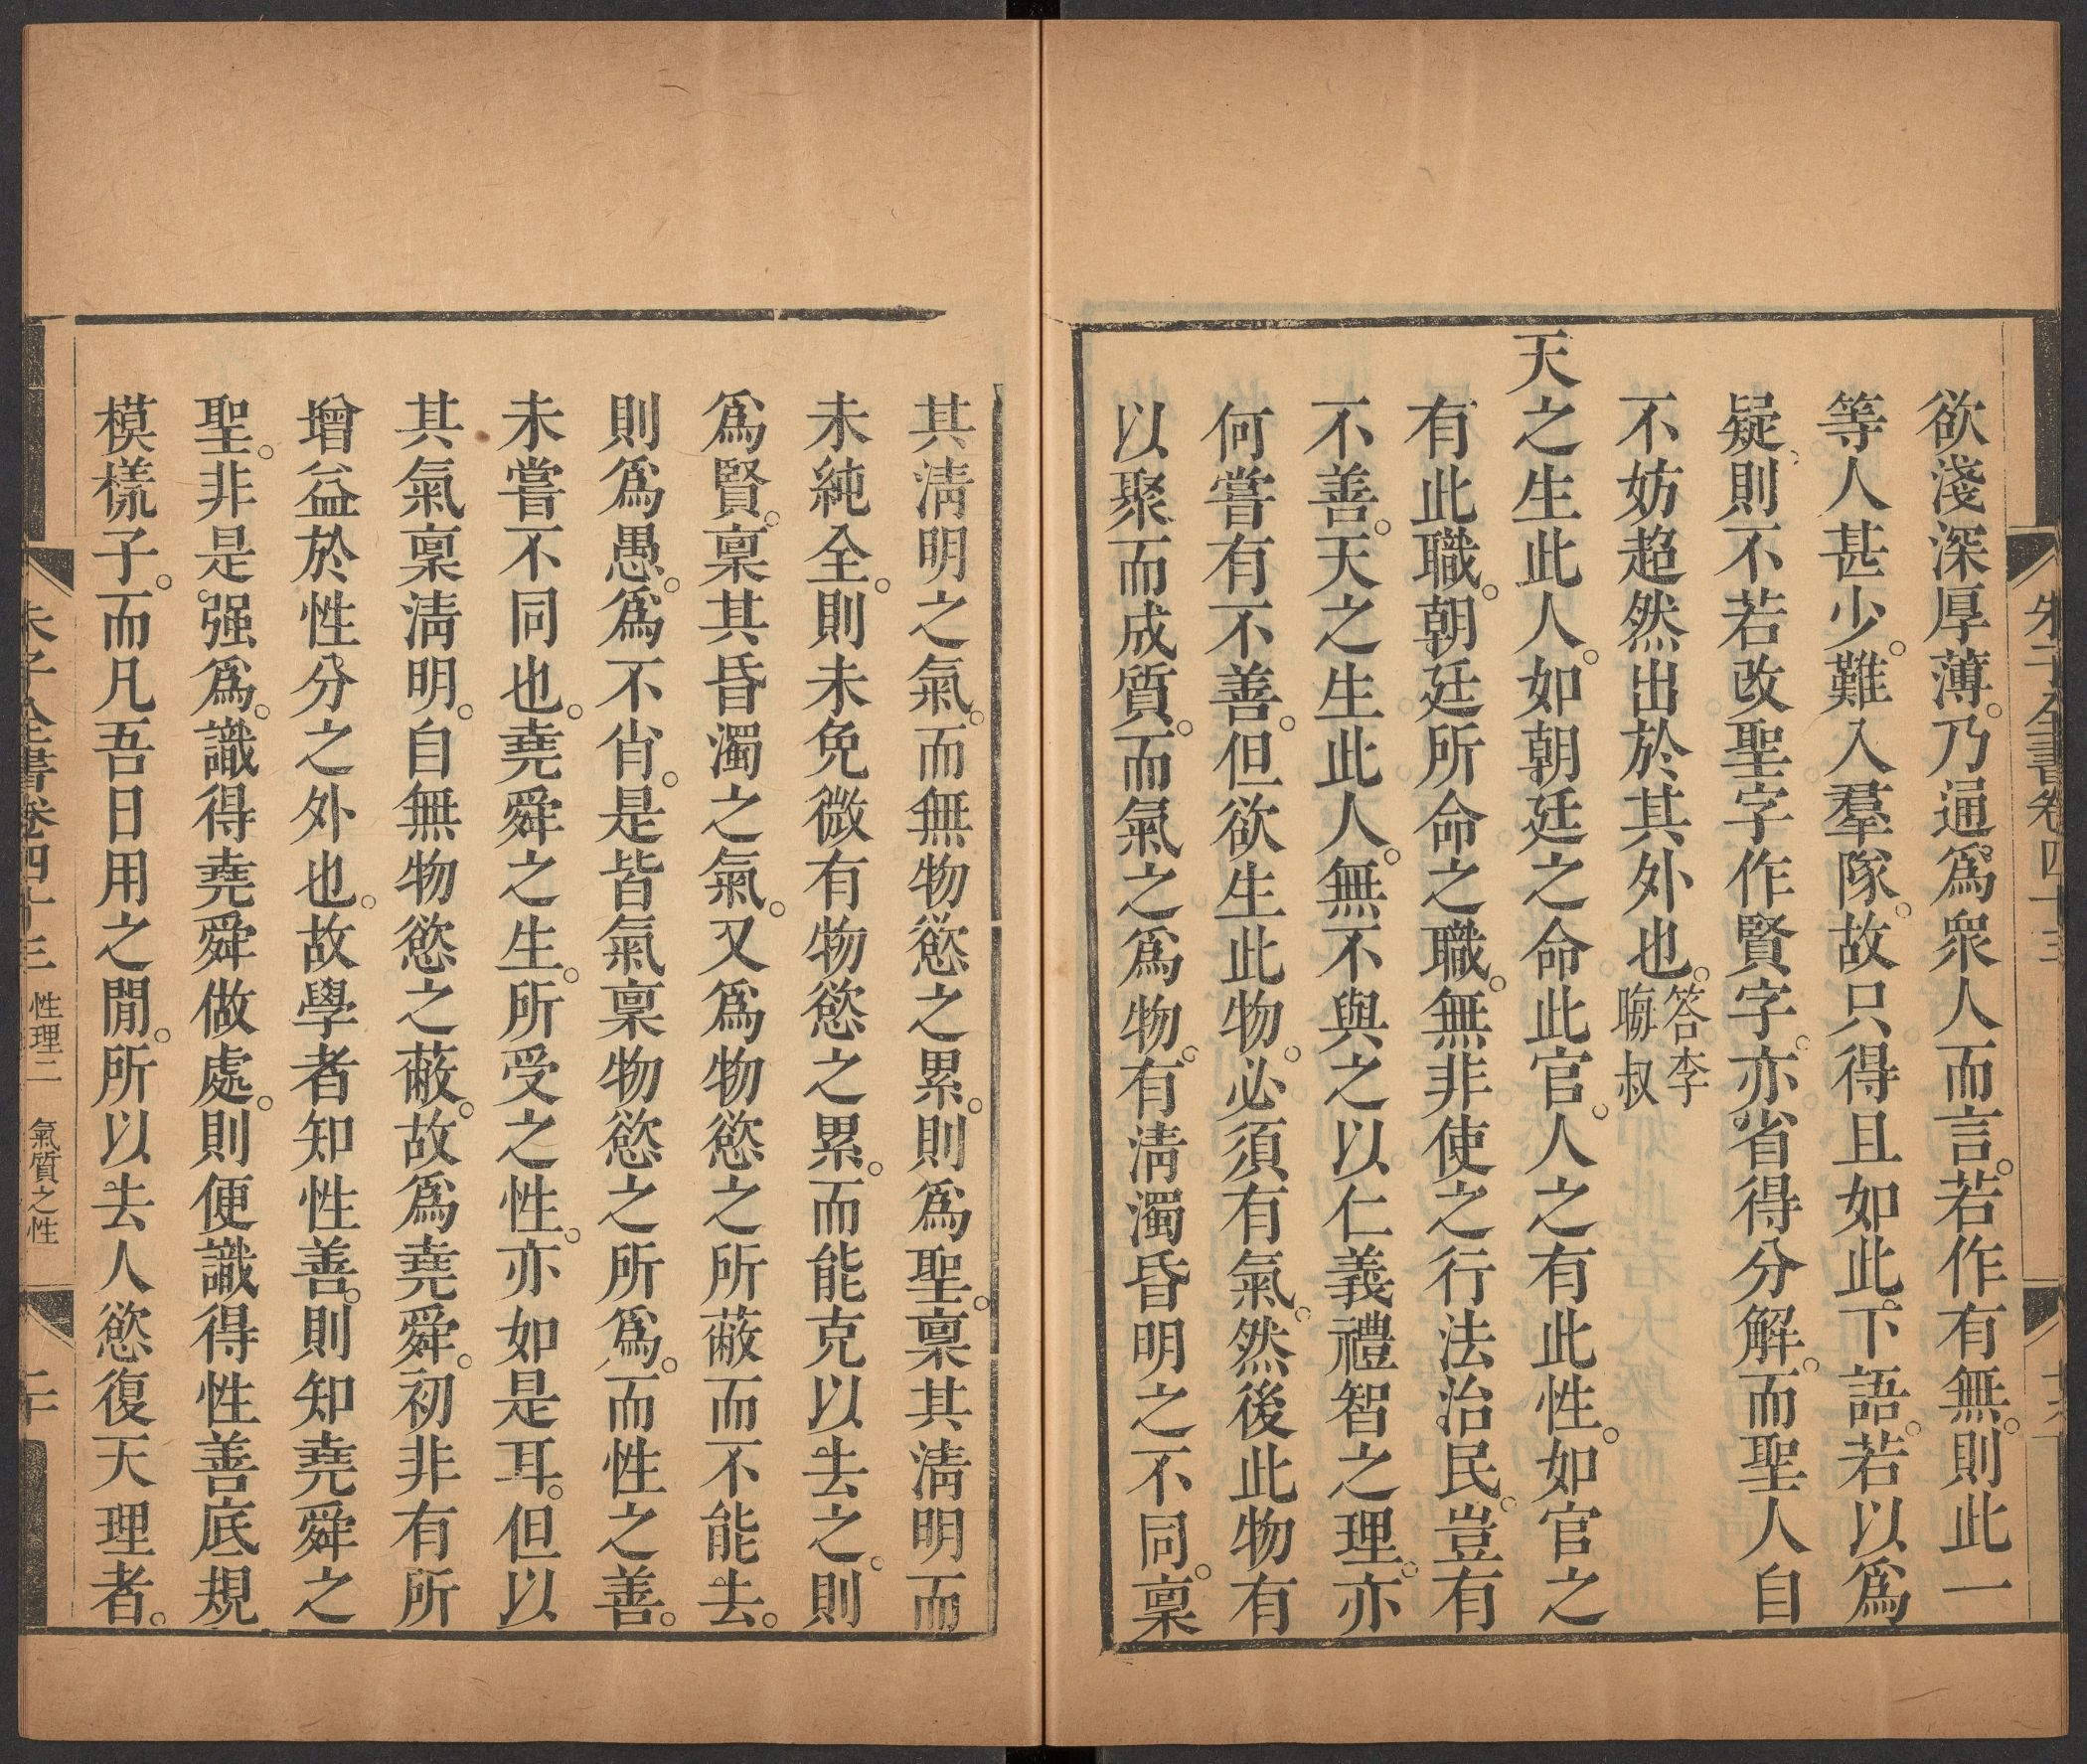 欲淺深厚薄。乃通爲衆人而言。若作有無。則此一
等人甚少。難入羣隊。故只得且如此下語。若以爲
疑、則不若改聖字作賢字。亦省得分解。而聖人自
不妨超然出於其外也。答李晦叔
天之生此人。如朝廷之命此官。人之有此性。如官之
有此職。朝廷所命之職。無非使之行法治民。豈有
不善。天之生此人。無不與之以仁義禮智之理。亦
何嘗有不善。但欲生此物。必須有氣。然後此物有
以聚而成質。而氣之爲物。有淸濁昏明之不同。稟
其淸明之氣。而無物慾之累。則爲聖。稟其淸明而
未純全。則未免微有物慾之累。而能克以去之。則
爲賢。稟其昏濁之氣。又爲物慾之所蔽而不能去。
則爲愚。爲不肖。是皆氣稟物慾之所爲。而性之善。
未嘗不同也。堯舜之生。所受之性。亦如是耳。但以
其氣稟淸明。自無物慾之蔽。故爲堯舜。初非有所
增益於性分之外也。故學者知性善。則知堯舜之
聖。非是强爲。識得堯舜做處。則便識得性善底規
模樣子。而凡吾日用之閒。所以去人慾復天理者。
朱子全書卷四十三 性理二 氣質之性